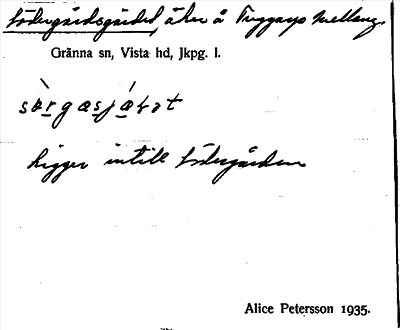 Södergårdsgärdet, åker å Tuggarps mellang.
Gränna sn, Vista hd, Jkpg. l.
Ligger intill Södergården
Alice Petersson 1935.